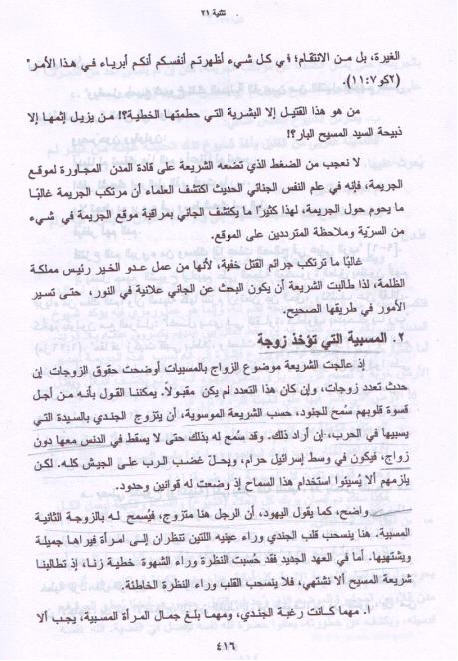 تثنية ٢١
الغيرة، بل من الانتقام؛ في كل شيء أظهرتم أنفسكم أنكم أبرياء في هذا الأمر"
(٢كو٧: ١١).
من هو هذا القتيل إلا البشرية التي حطمتها الخطية؟! من يزيل إثمها إلا
ذبيحة السيد المسيح البار؟!
لا نعجب من الضغط الذي تضعه الشريعة على قادة المدن المجاورة لموقع
الجريمة، فإنه في علم النفس الجنائي الحديث اكتشف العلماء أن مرتكب الجريمة غالبًا
ما يحوم حول الجريمة، لهذا كثيرًا ما يكتشف الجاني بمراقبة موقع الجريمة في شيء
من السريّة وملاحظة المترددين على الموقع.
غالبًا ما ترتكب جرائم القتل خفية، لأنها من عمل عدو الخير رئيس مملكة
الظلمة، لذا طالبت الشريعة أن يكون البحث عن الجاني علانية في النور، حتى تسير
الأمور في طريقها الصحيح.
٢. المسبية التي تؤخذ زوجة
إذ عالجت الشريعة موضوع الزواج بالمسبيات أوضحت حقوق الزوجات إن
حدث تعدد زوجات، وإن كان هذا التعدد لم يكن مقبولاً. يمكننا القول بأنه من أجل
قسوة قلوبهم سُمح للجنود، حسب الشريعة الموسوية، أن يتزوج الجندي بالسيدة التي
يسبيها في الحرب، إن أراد ذلك. وقد سُمح له بذلك حتى لا يسقط في الدنس معها دون
زواج، فيكون في وسط إسرائيل حرام، ويحلّ غضب الرب على الجيش كله. لكن
يلزمهم ألا يُسيئوا استخدام هذا السماح إذ وضعت له قوانين وحدود.
واضح، كما يقول اليهود، أن الرجل هنا متزوج، فيُسمح له بالزوجة الثانية
المسبية. هنا ينسحب قلب الجندي وراء عينيه اللتين تنظران إلى امرأة فيراها جميلة
ويشتهيها. أما في العهد الجديد فقد حُسبت النظرة وراء الشهوة خطية زنا، إذ تطالبنا
شريعة المسيح ألا نشتهي، فلا ينسحب القلب وراء النظرة الخاطئة.
ا. مهما كانت رغبة الجندي، ومهما بلغ جمال المرأة المسبية، يجب ألا
٤١٦